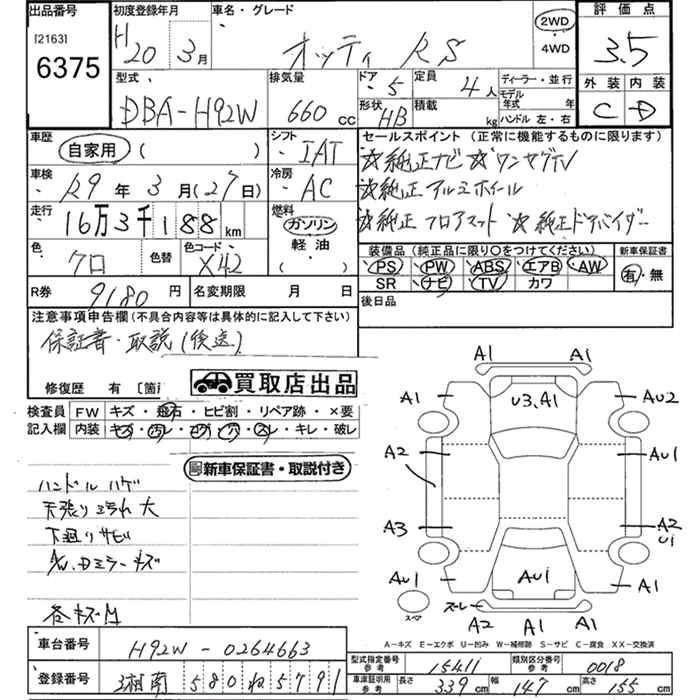 出品番号
[2163]
6375
初度登録年月
H20 3月
車名・グレード
オッティ RS
2WD
・4WD
評価点
3.5
外装 内装
C D
型式
DBA-H92W
排気量
660 cc
ドア
5
形状
HB
定員
4人
積載
kg
ディーラー・並行
モデル年式 年
ハンドル 左・右
車歴
自家用 ( )
シフト
IAT
車検
R9年3月(27日)
冷房
AC
走行
16万3千188km
燃料
ガソリン
軽油
( )
色
クロ
色替
色コード
X42
R券
9180円
名変期限 月 日
セールスポイント(正常に機能するものに限ります)
☆純正ナビ ☆ワンセグTV
☆純正アルミホイール
☆純正フロアマット ☆純正ドアバイザー
装備品(純正品に限り○をつけてください)
新車保証書
PS PW ABS エアB AW
SR ナビ TV カワ
有・無
後日品
注意事項申告欄(不具合内容等は具体的に記入して下さい)
保証書・取説(後送)
修復歴 有 〔箇
買取店出品
検査員記入欄
FW キズ・飛石・ヒビ割・リペア跡・×要
内装 キズ・汚レ・コゲ・穴・スレ・キレ・破レ
新車保証書・取説付き
ハンドルハゲ
天張り汚れ大
下廻りサビ
A/U、Dミラーキズ
各キズ凹
A1 A1
A1 U3、A1 AU2
A2 AU1
A3 A2
U1
AU1 AU1 A1
スペア
スレ
A2 A1 A1
A−キズ E−エクボ U−凹み W−補修跡 S−サビ C−腐食 XX−交換済
車台番号
H92W-0264663
登録番号
湘南 580 ね 5791
型式指定番号
参考
15411
類別区分番号
参考
0018
車庫証明用
参考
長さ 339cm 幅 147cm 高さ 155cm